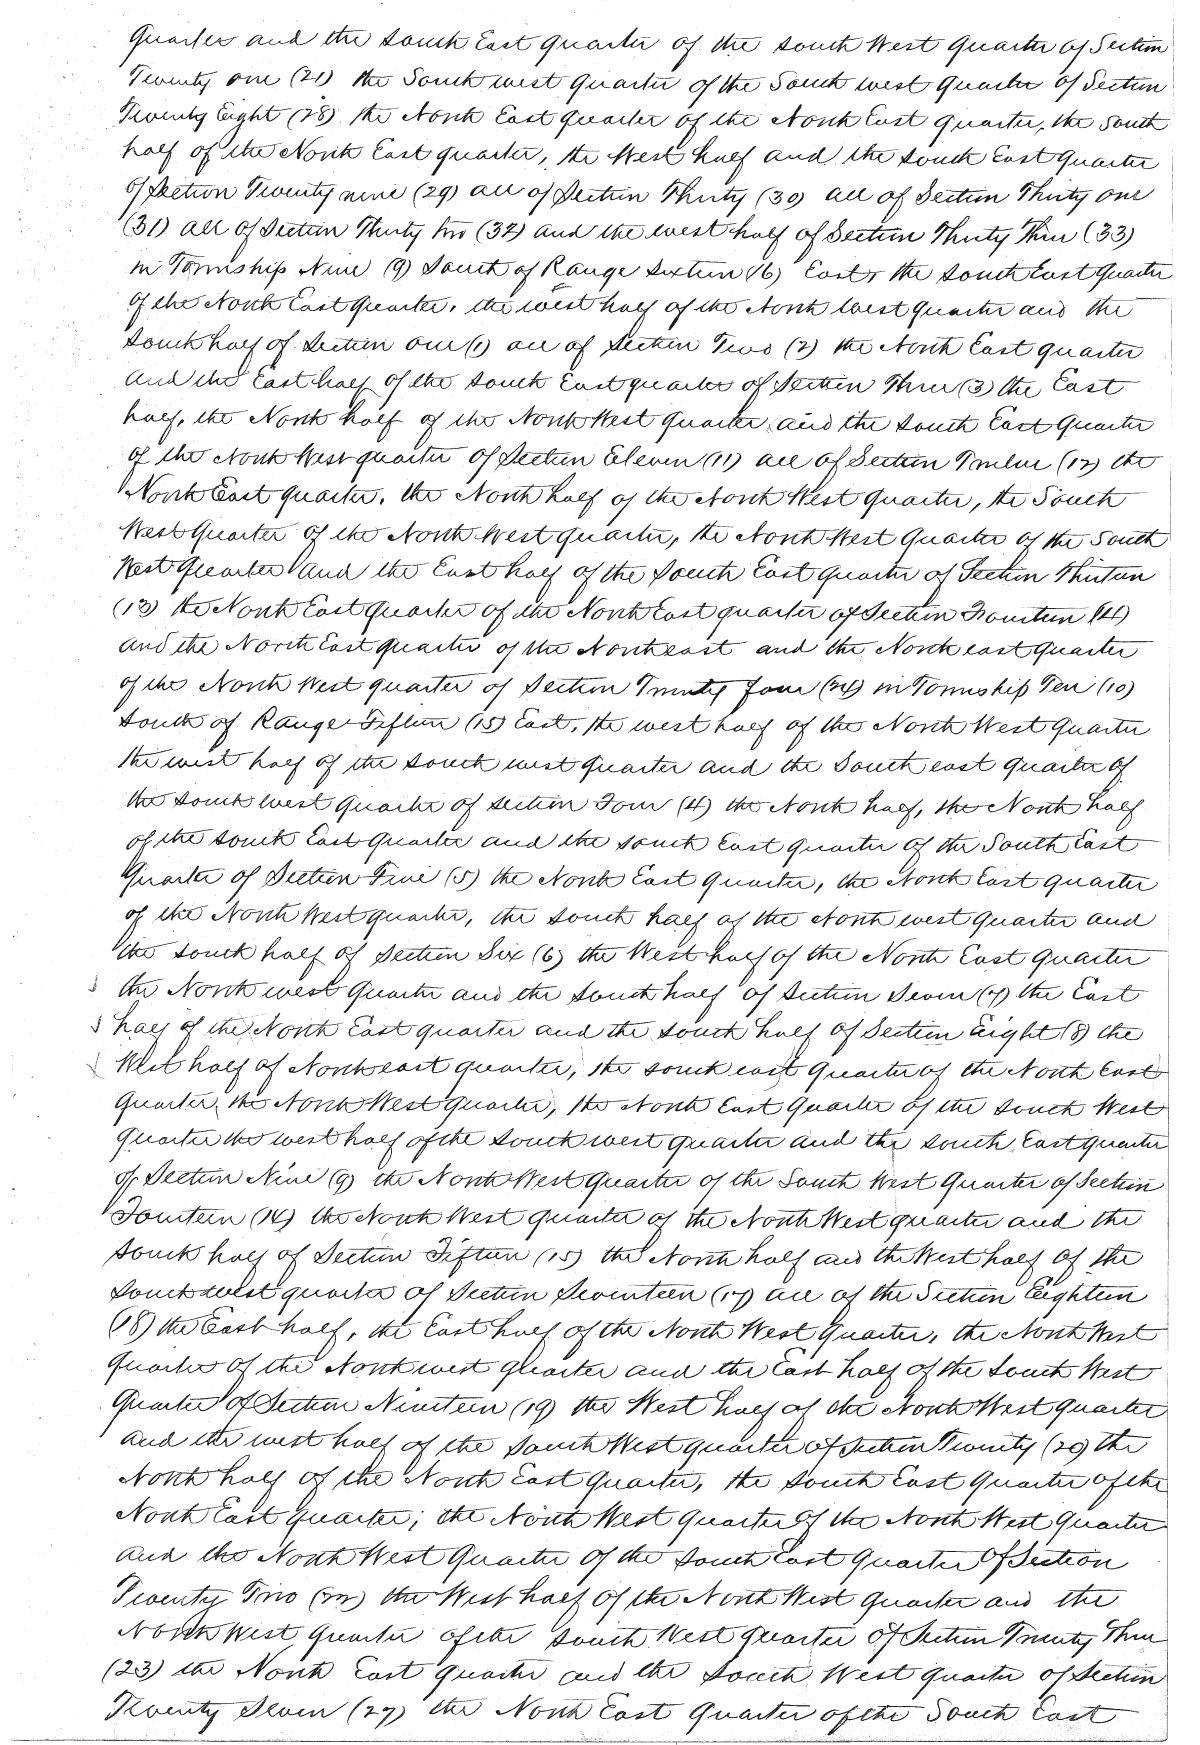 Quarter and the South East quarter of the South West Quarter of Section
Twenty one (21) the South west quarter of the South west quarter of Section
Twenty Eight (28) the North East quarter of the North East quarter, the South
half of the North East quarter, the West half and the South East quarter
of Section Twenty nine (29) all of Section Thirty (30) all of Section Thirty one
(31) all of Section Thirty two (32) and the west half of Section Thirty Three (33)
in Township Nine (9) South of Range Sixteen (16) East, the South East quarter
of the North East quarter, the west half of the North West quarter and the
South half of Section one (1) all of Section Two (2) the North East quarter
and the East half of the South East quarter of Section Three (3) the East
half, the North half of the North West quarter and the South East Quarter
of the North West quarter of Section Eleven (11) all of Section Twelve (12) the
North East quarter, the North half of the North West Quarter, the South
West Quarter of the North West quarter, the North West Quarter of the South
West Quarter and the East half of the South East quarter of Section Thirteen
(13) the North East Quarter of the North East quarter of Section Fourteen (14)
and the North East quarter of the North east and the North east quarter
of the North West quarter of Section Twenty four (24) in Township Ten (10)
South of Range Fifteen (15) East, the west half of the North West Quarter
the west half of the South west quarter and the South east quarter of
the South west quarter of section Four (4) the North half, the North half
of the South East Quarter and the South East quarter of the South East
Quarter of Section Five (5) the North East Quarter, the North East quarter
of the North West quarter, the South half of the North west quarter and
the South half of Section Six (6) the West half of the North East quarter
the North west quarter and the South half of Section Seven (7) the East
half of the North East quarter and the South half of Section Eight (8) the
West half of North east quarter, the South east quarter of the North East
Quarter, the North West Quarter, the North East Quarter of the South West
Quarter the west half of the South west quarter and the South East quarter
of Section Nine (9) the North West Quarter of the South West Quarter of Section
Fourteen (14) the North West quarter of the North West quarter and the
South half of Section Fifteen (15) the North half and the West half of the
South west quarter of Section Seventeen (17) all of the Section Eighteen
(18) the East half, the East half of the North West Quarter, the North West
quarter of the North west quarter and the East half of the South West
Quarter of Section Nineteen (19) the West half of the North West quarter
and the west half of the South West quarter of Section Twenty (20) the
North half of the North East Quarter, the South East Quarter of the
North East quarter; the North West Quarter of the North West Quarter
and the North West Quarter of the South East Quarter Of Section
Twenty Two (22) the West half of the North West Quarter and the
North West Quarter of the South West Quarter of Section Twenty Three
(23) the North East Quarter and the South West quarter of Section
Twenty Seven (27) the North East Quarter of the South East